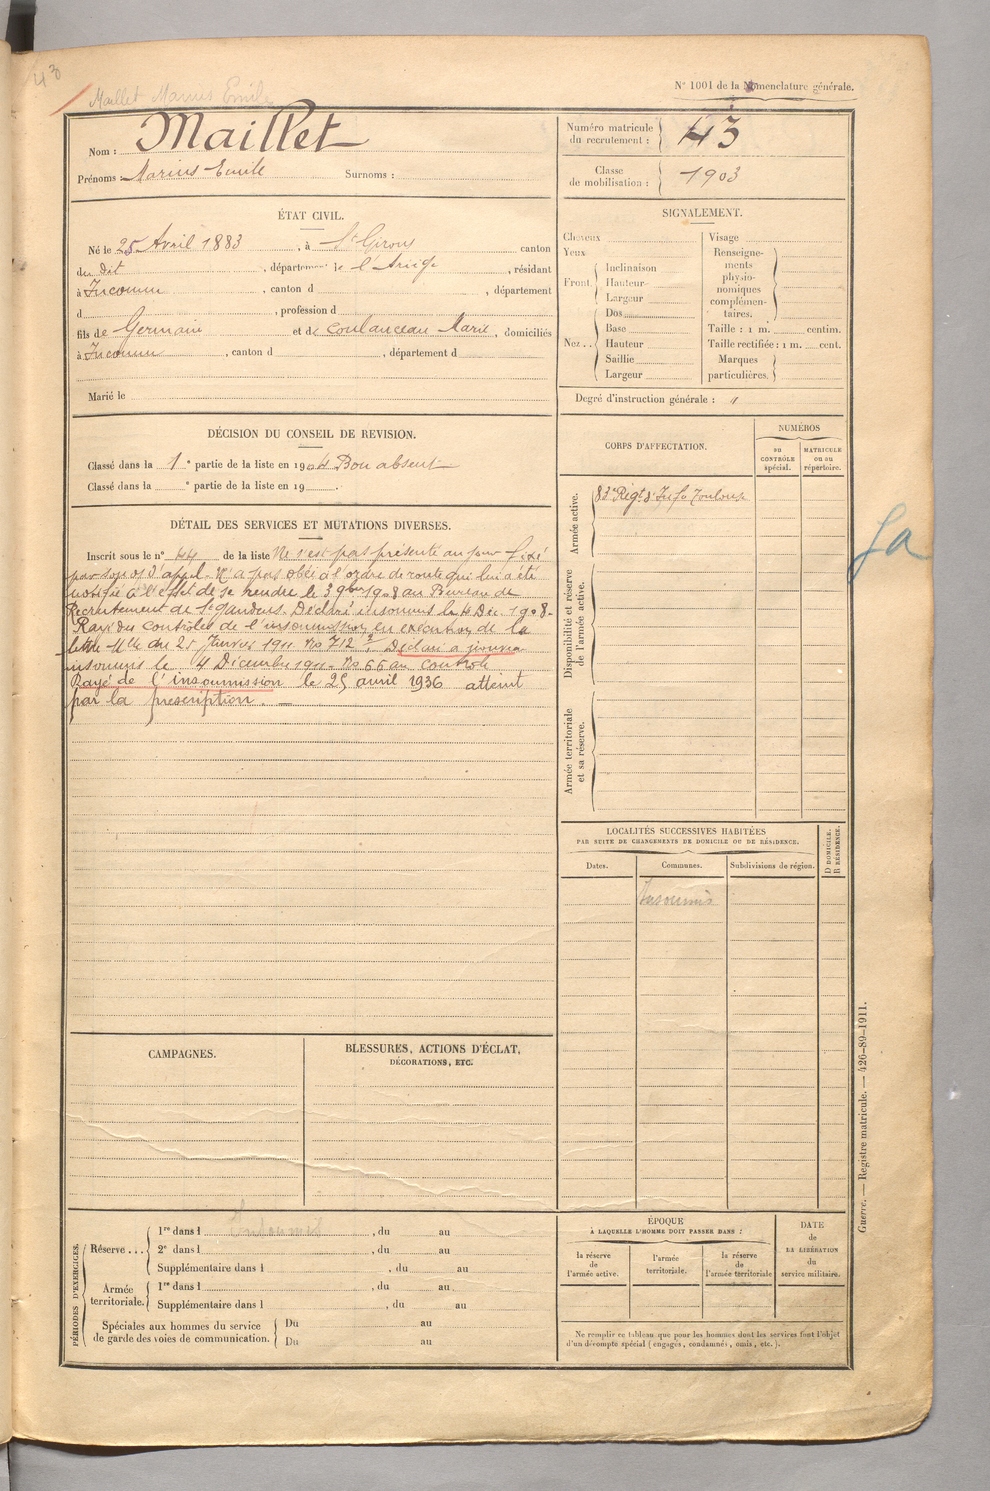 43
Maillet Marius Emile
N° 1001 de la Nomenclature générale.
Nom : Maillet
Prénoms : Marius Emile Surnoms :
Numéro matricule du recrutement : 43
Classe de mobilisation : 1903
ÉTAT CIVIL.
Né le 25 Avril 1883, à St Girons canton
du dit, département de l'Ariège, résidant
à Inconnu, canton d , département
d , profession d
fils de Germain et de Coulanceau Marie, domiciliés
à Inconnu, canton d , département d
Marié le
SIGNALEMENT.
Cheveux
Yeux
Front.
Inclinaison
Hauteur
Largeur
Nez..
Dos
Base
Hauteur
Saillie
Largeur
Visage
Renseignements physionomiques complémentaires.
Taille : 1 m. centim.
Taille rectifiée : 1 m. cent.
Marques particulières.
Degré d'instruction générale : 1
DÉCISION DU CONSEIL DE REVISION.
Classé dans la 1e partie de la liste en 1904 Bon absent
Classé dans la e partie de la liste en 19 .
DÉTAIL DES SERVICES ET MUTATIONS DIVERSES.
Inscrit sous le n° 44 de la liste Ne s'est pas présenté au jour fixé
par son os d'appel. N'a pas obéi à l'ordre de route qui lui a été
notifié à l'effet de se rendre le 3 9bre 1908 au Bureau de
Recrutement de St Gaudens. Déclaré insoumis le 4 Déc. 1908.
Rayé des contrôles de l'insoumission, en exécution de la
lettre Mlle du 25 Janvier 1911 No 712. Déclaré à nouveau
insoumis le 4 Décembre 1911. No 66 au contrôle
Rayé de l'insoumission le 25 avril 1936 atteint
par la prescription.
CORPS D'AFFECTATION.
NUMÉROS
DU CONTRÔLE spécial.
MATRICULE ou au répertoire.
Armée active.
83e Régt d'Infie Toulouse
Disponibilité et réserve de l'armée active.
Armée territoriale et sa réserve.
LOCALITÉS SUCCESSIVES HABITÉES
PAR SUITE DE CHANGEMENTS DE DOMICILE OU DE RÉSIDENCE.
Dates.
Communes.
Subdivisions de région.
D DOMICILE.
R RÉSIDENCE.
Insoumis
CAMPAGNES.
BLESSURES, ACTIONS D'ÉCLAT,
DÉCORATIONS, ETC.
PÉRIODES D'EXERCICES.
Réserve...
1re dans l , du au
2e dans l , du au
Supplémentaire dans l , du au
Armée territoriale.
1re dans l , du au
Supplémentaire dans l , du au
Spéciales aux hommes du service
de garde des voies de communication.
Du au
Du au
ÉPOQUE
À LAQUELLE L'HOMME DOIT PASSER DANS :
la réserve de l'armée active.
l'armée territoriale.
la réserve de l'armée territoriale
DATE
de
LA LIBÉRATION
du
service militaire.
Ne remplir ce tableau que pour les hommes dont les services font l'objet
d'un décompte spécial (engagés, condamnés, omis, etc.).
Guerre. — Registre matricule. — 426-89-1911.